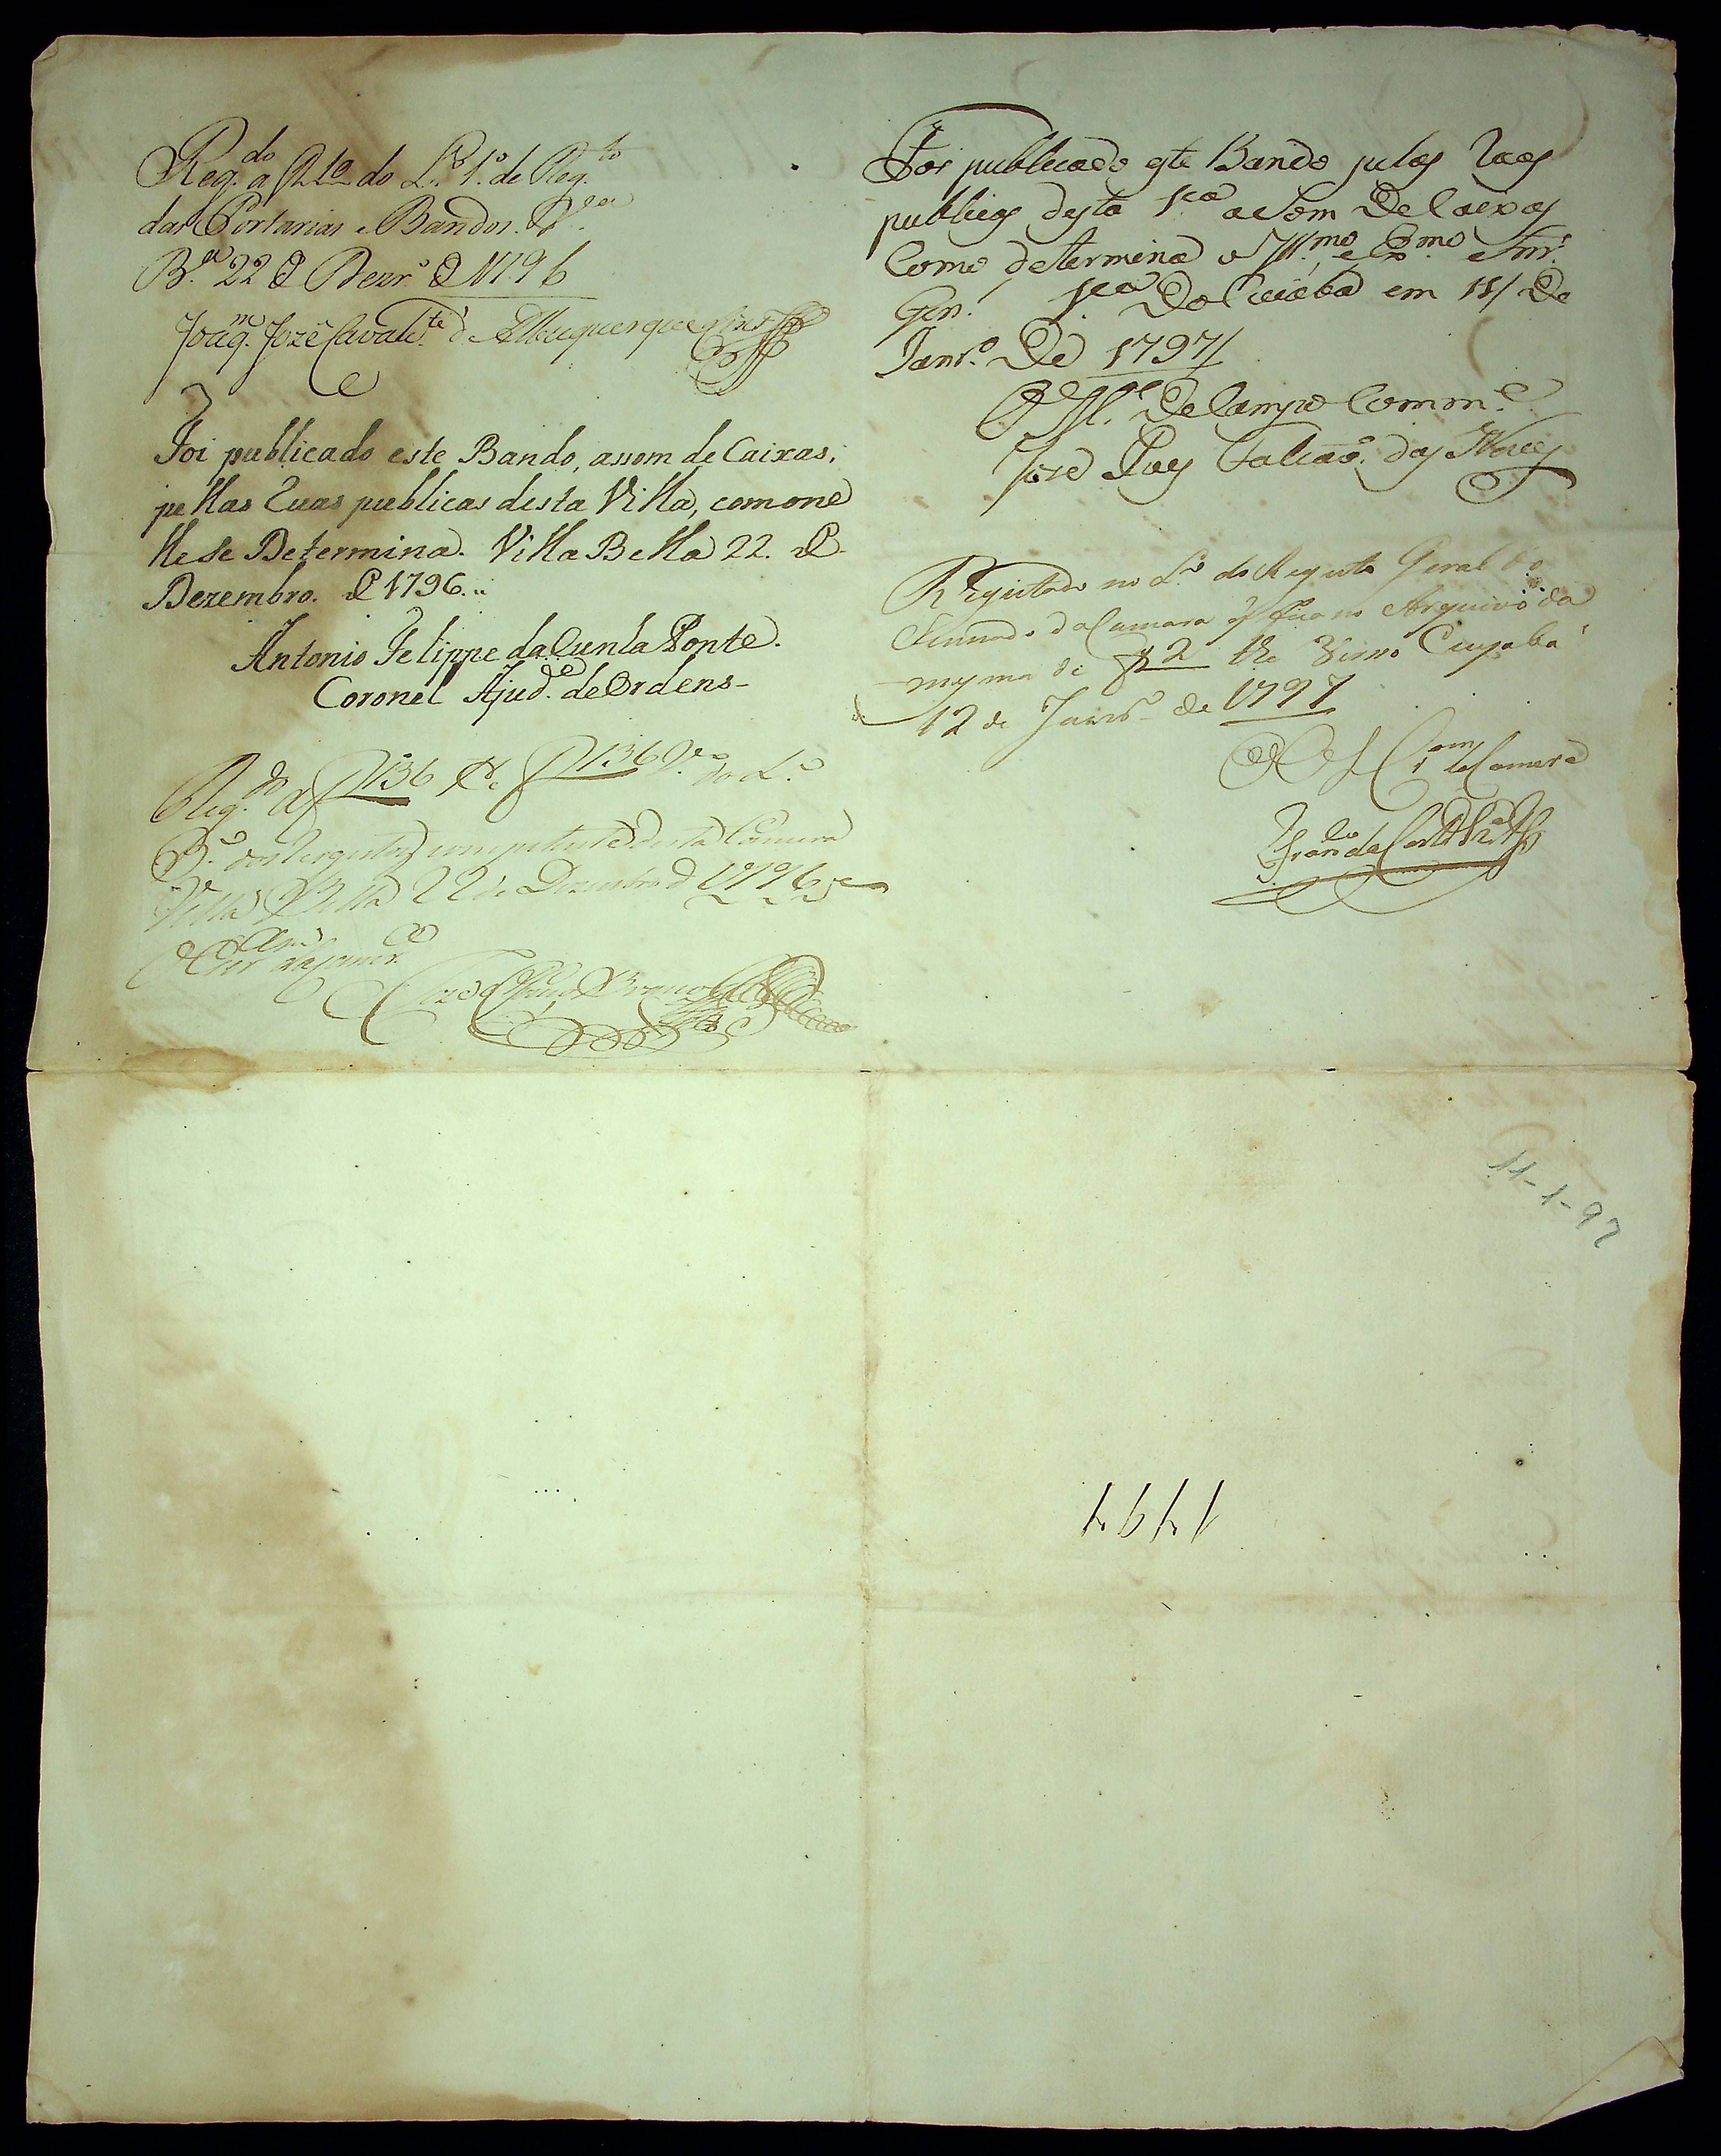 Reg.do a f 210 do L.º 1.º de Reg.to
das Portarias e Bandos. V.ª
B.ª 22 de Dezr.º de 1796
Joaq.m Jozé Cavalc.te d'Albuquerque Lins
Foi publicado este Bando, assom de Caixas,
pellas Ruas publicas desta Villa, comone
lle se Determina. Villa Bella 22. de
Dezembro. de 1796.
Antonio Felippe da Cunha Ponte.
Coronel Ajud.e de Ordens
Reg.do a f 136 the f 136 V.º do L.º
3.º dos Registos competente desta Camera
Villa Bella 22 de Dezembro d 1796
O Escr.am da Camr.ª
Foi publicado este Bando pelas Ruas
publicas desta V.ª a Som De Caixas
Como determina o Ill.mo e Ex.mo Snr.
Gen.l V.ª Do Cuiabá em 11 De
Janr.º De 1797
O M.e De Campo Comm.e
Joze Paes Falcaõ das Neves
Registado no L.º do Registo Geral do
Senado da Camara q fica no Arquivo da
mesma de f 2 the Cuyabá
12 de Janrº de 1797
O Escr.am da Camera
11-1-97
1797